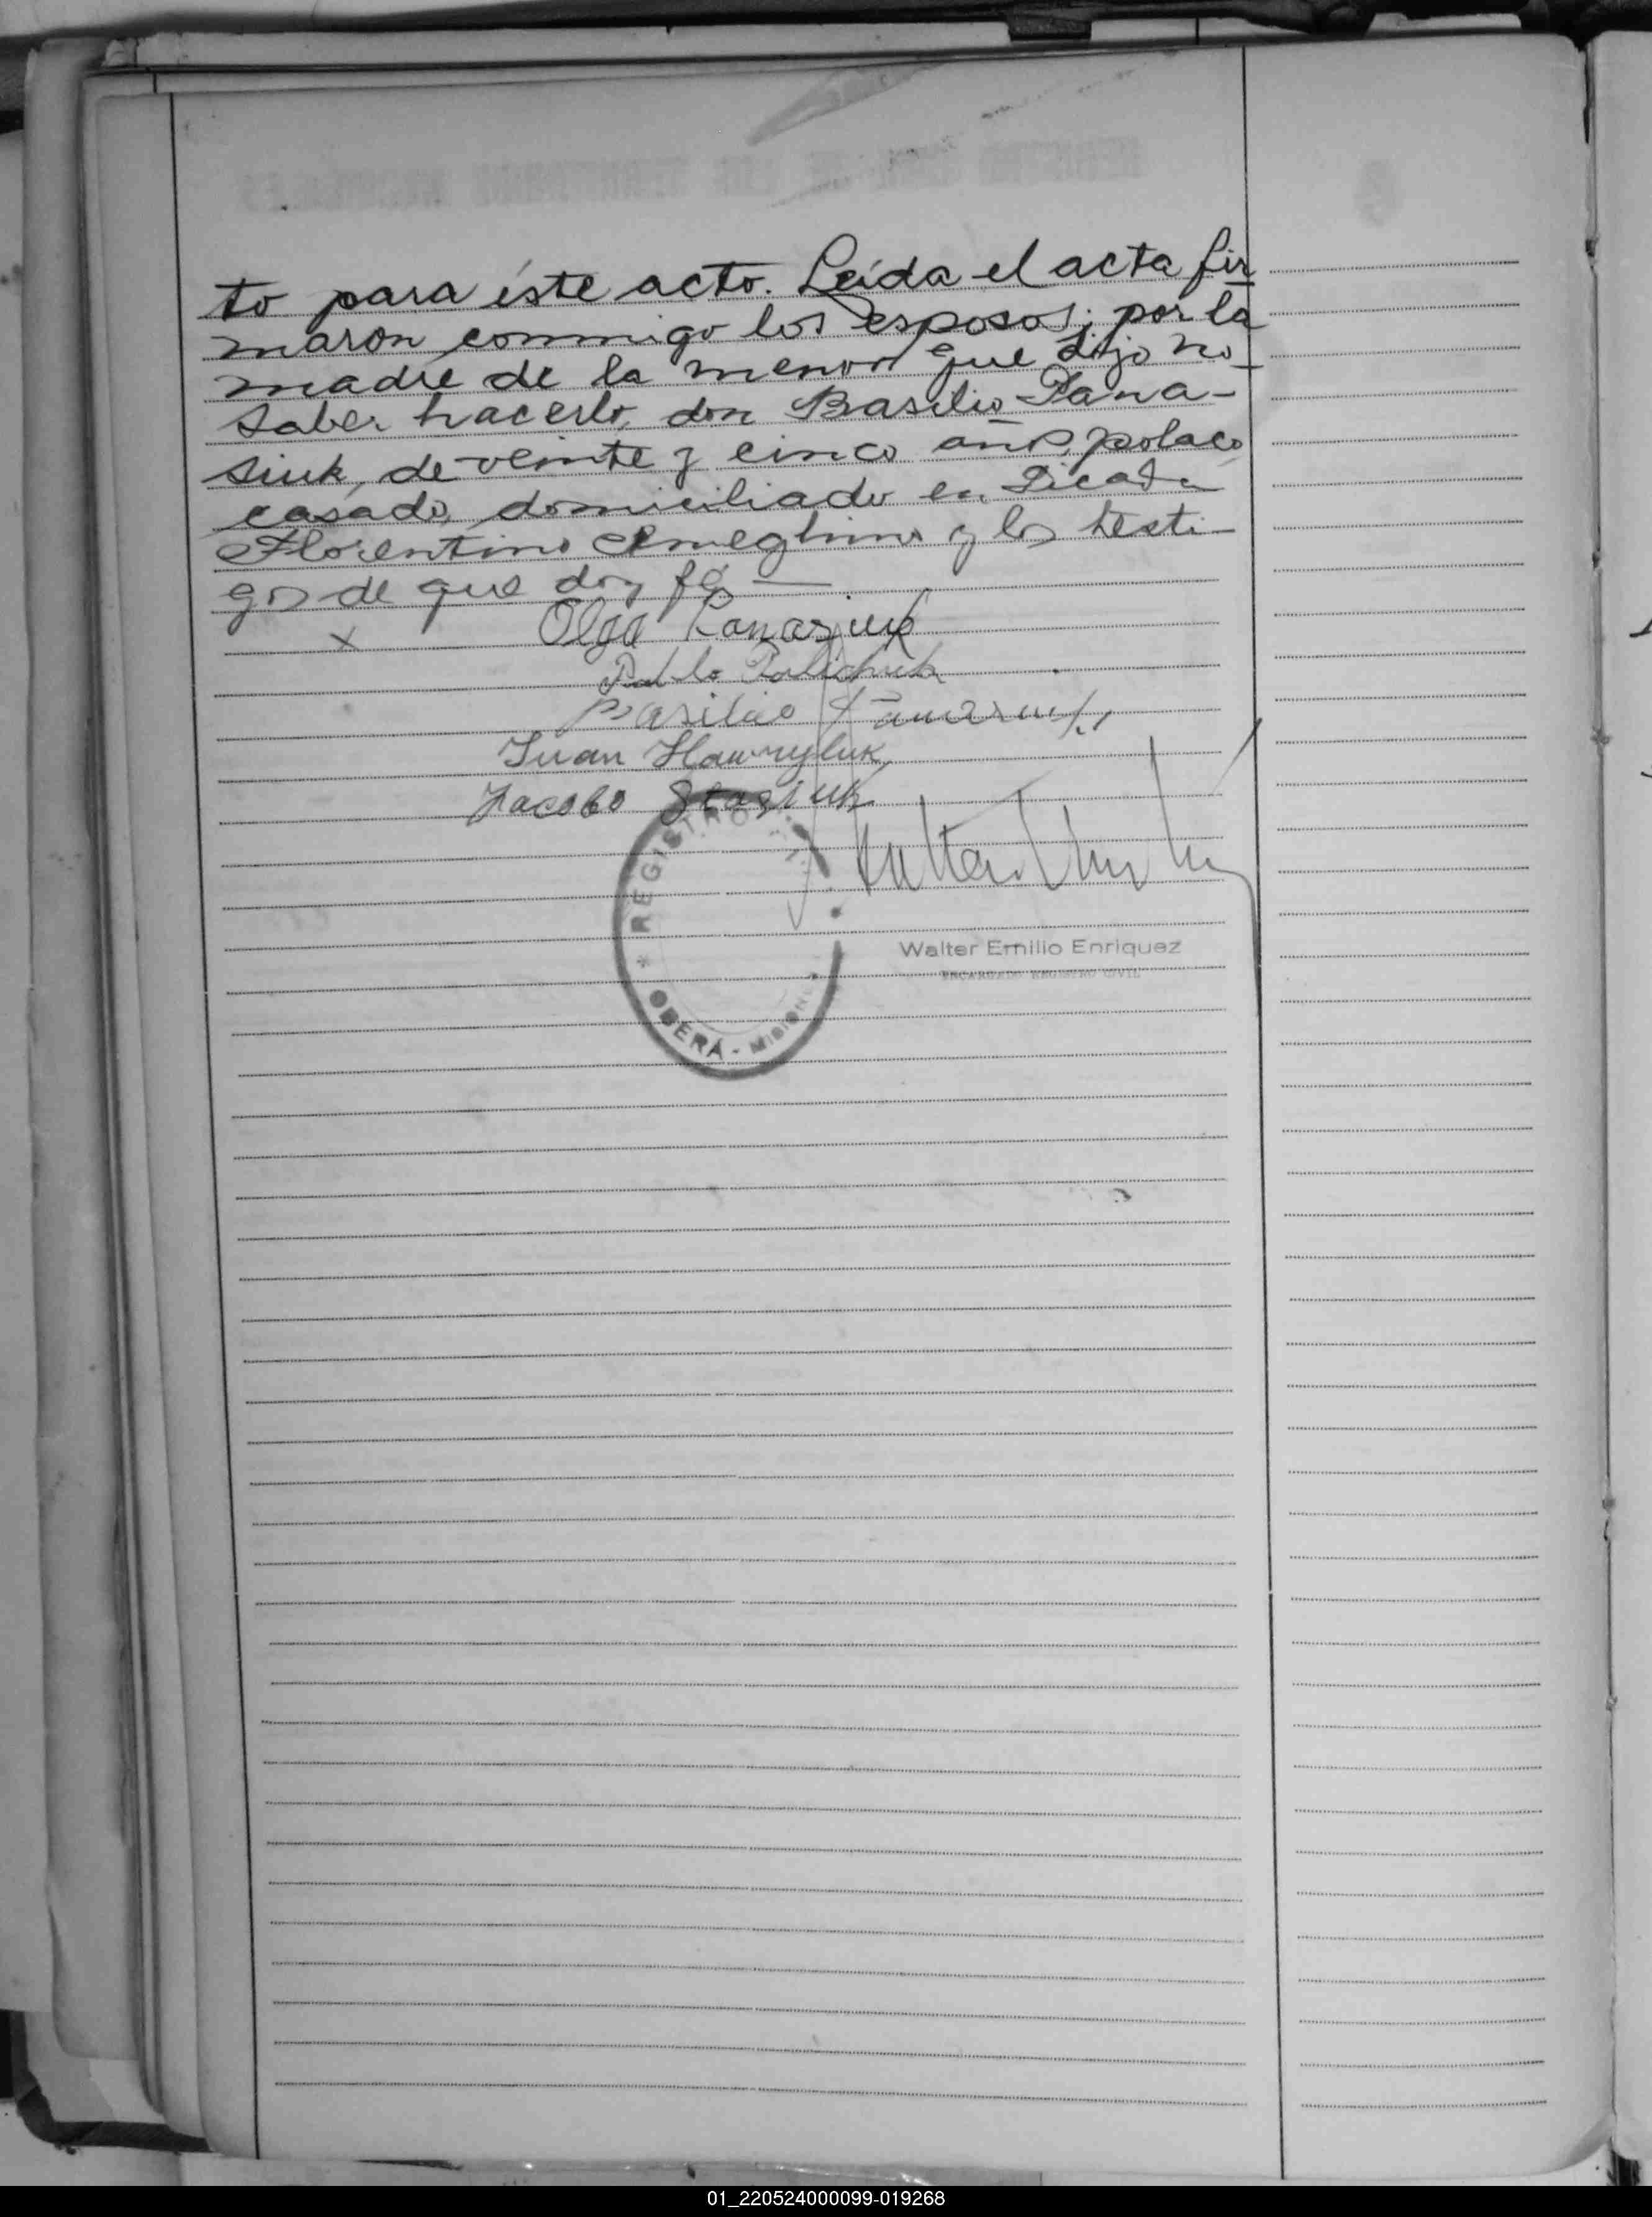 to para éste acto. Leída el acta fir
maron conmigo los esposos; por la
madre de la menor que dijo no
saber hacerlo, don Basilio Pana-
siuk, de veinte y cinco años, polaco,
casado, domiciliado en Picada
Florentino Ameghino y los testi-
gos de que doy fé —
x Olga Panasiuk
Pablo
Basilio Panasiuk
Juan Hawryluk
Jacobo Stasiuk
REGISTRO
OBERÁ - MISIONES
Walter Emilio Enriquez
ENCARGADO REGISTRO CIVIL
01_220524000099-019268